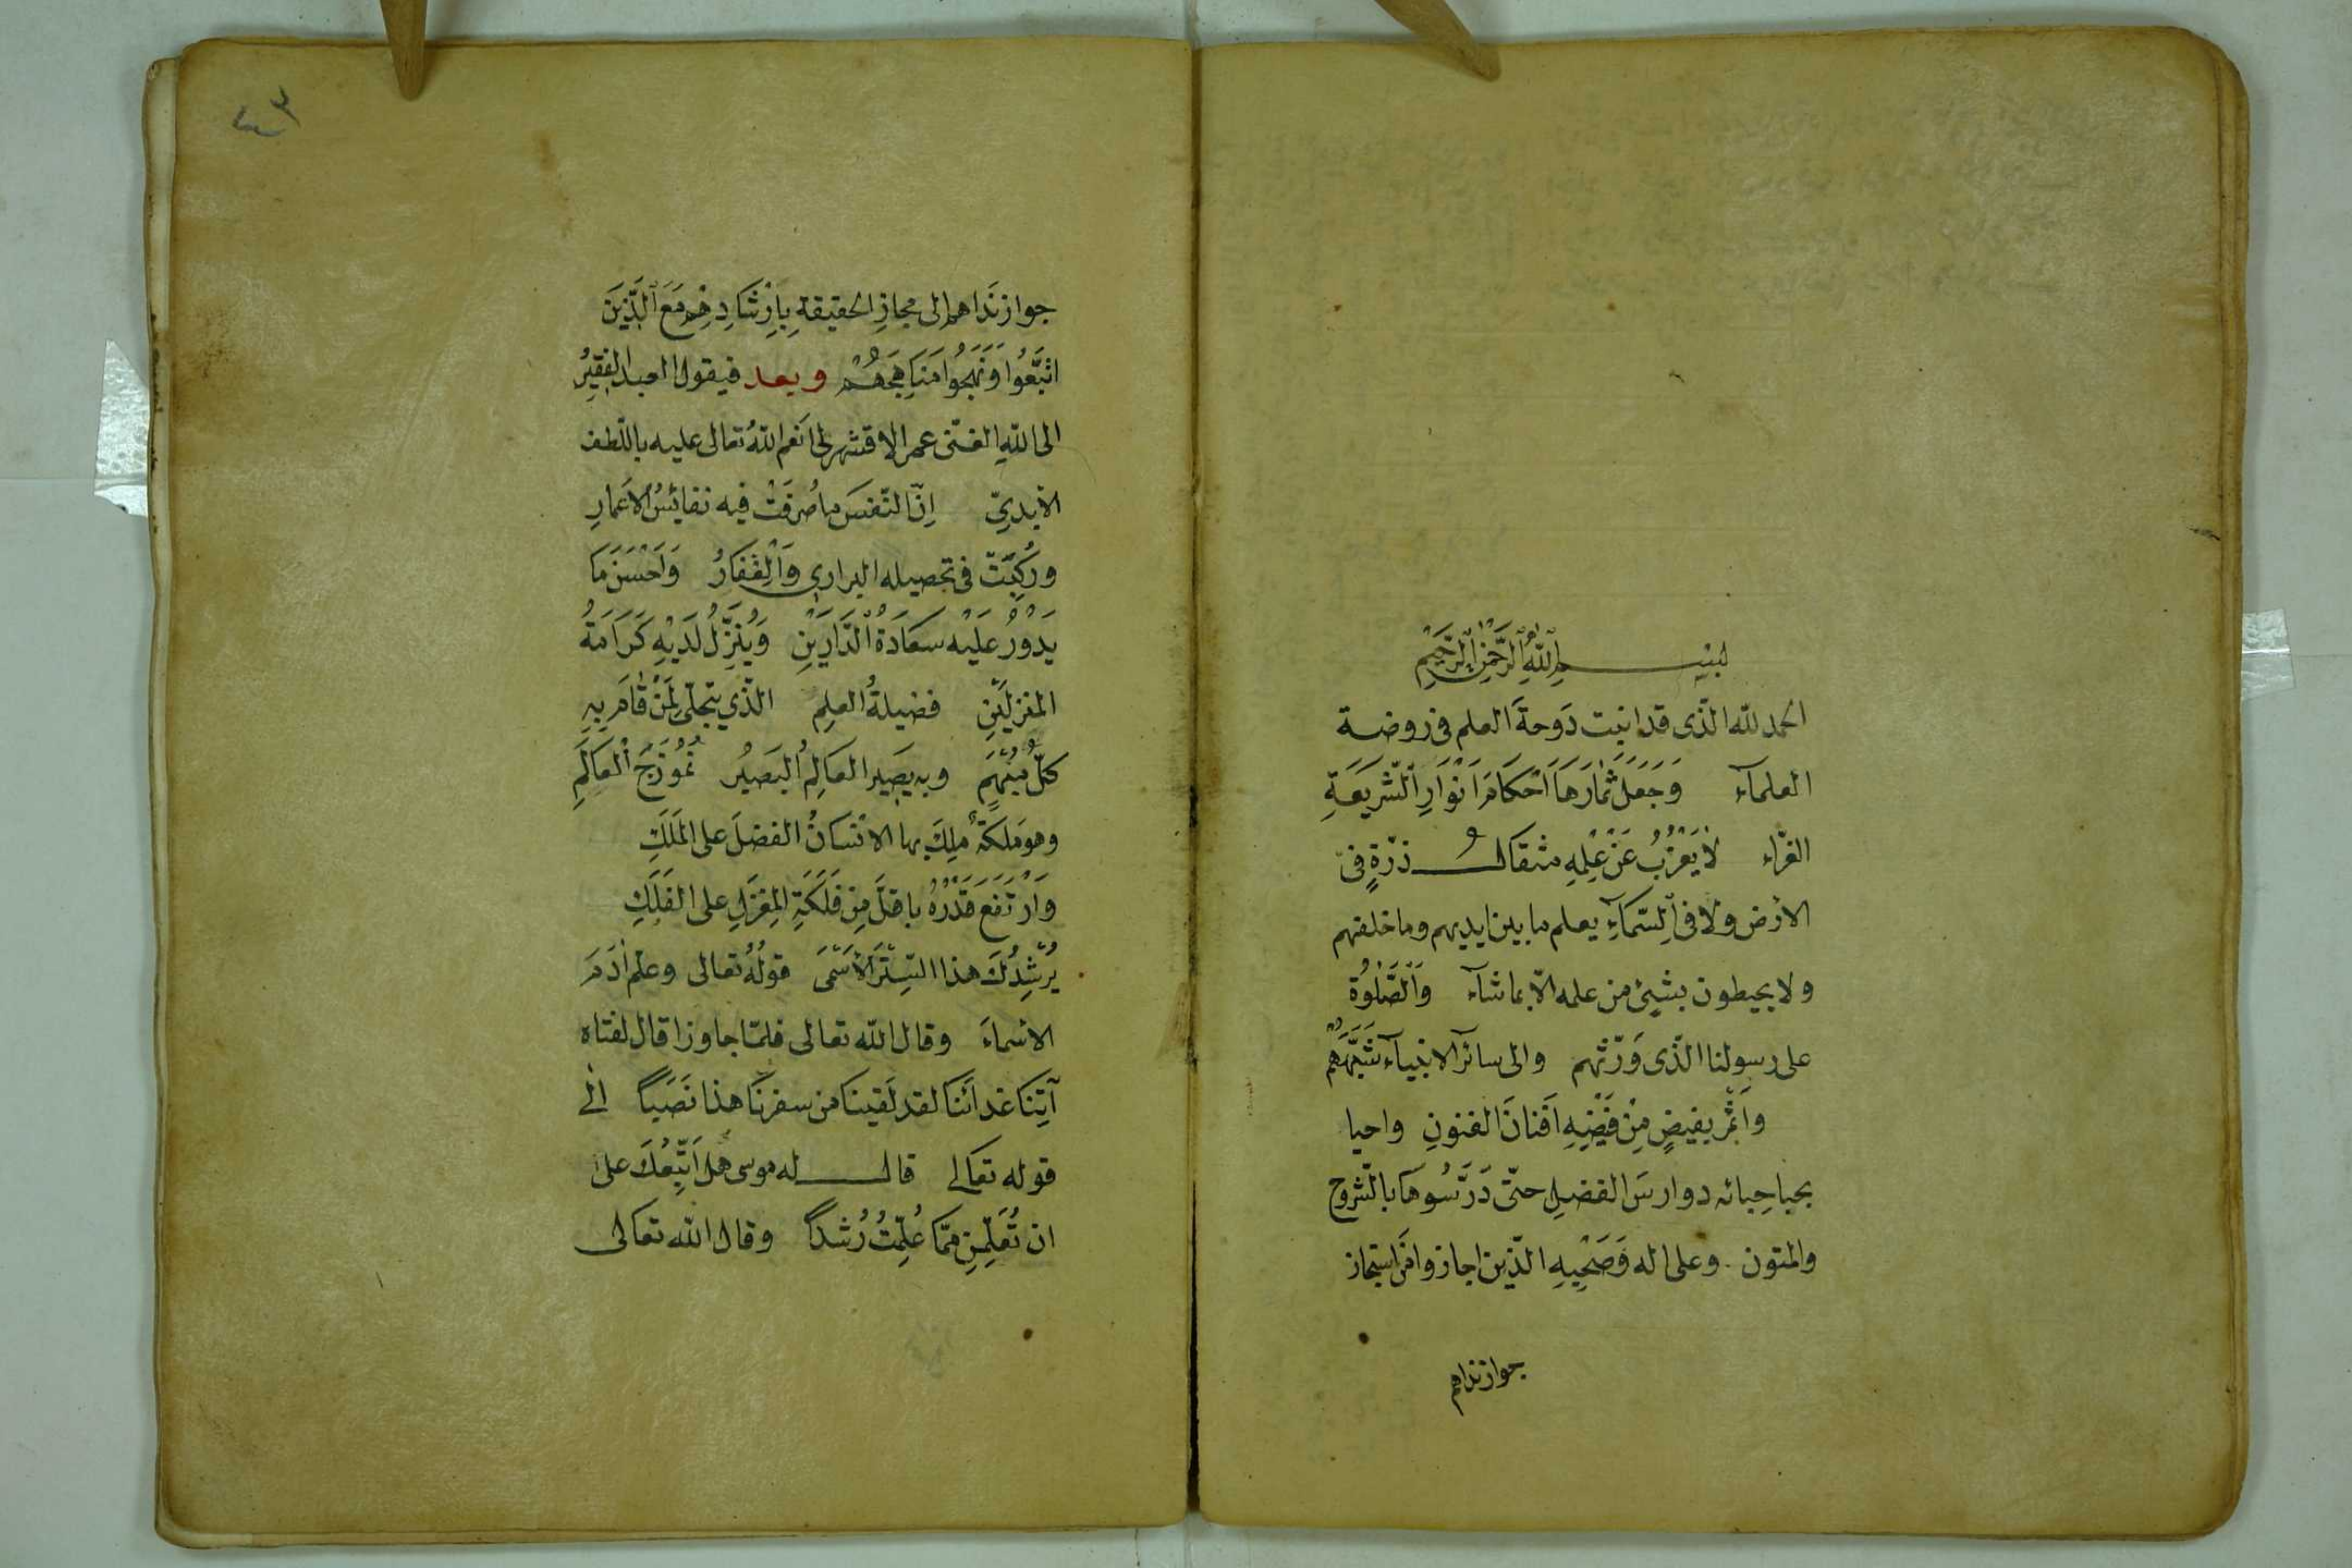 بسم الله الرحمن الرحيم
الحمد لله الذى قد انبت دَوحةَ العلم فى روضة
العلمآء وَجَعَلَ ثمارَهَا اَحْكَامَ اَنْوَارِ الشَّريعَةِ
الغرّاء لَا يَعْزُبُ عَنْ عِلْمِهِ مثقال ذرّةٍ فى
الارض ولا فى السّمآءِ يعلم ما بين ايديهم وما خلفهم
ولا يحيطون بشئ من علمه الّا بما شآء وَالصَّلوٰةُ
على رسولنا الّذى وَرّثهم والى سائر الانبيآء
واَثْمَر بفيضٍ مِنْ فَيْضِهِ اَفنانَ الفنونِ واحيا
بحيا حِبائه دوارسَ الفضلِ حتّى دَرَّسُوهَا بالشّروحِ
والمتون وعلى اله وَصَحْبِهِ الّذين اجازوا مَن استجاز
جواز نداهم
٤٣
جواز نَدَاهم الى مجازِ الحقيقةِ بِاِرْشَادِهِم مَعَ الَّذِينَ
اتَّبَعُوا وَنَهَجُوا مَنَاهِجَهُمْ وبعد فيقول العبد الفقيرُ
الى اللهِ الغنى عمر الاقشهرلى انعم اللهُ تعالى عليه باللّطف
الابدىّ اِنّ انفسَ ما صُرفَتْ فيه نفائسُ الاَعمارِ
ورُكِبَتْ فى تحصيله البرارى وَالْقِفَارُ وَاَحْسَنَ مَا
يَدُوْرُ عَلَيْهِ سَعَادَةُ الدَّارَيْنِ وَيُنَزِّلُ لَدَيْهِ كَرَامَةُ
المنزلَيْنِ فضيلةُ العلِم الّذي يتجلّى لِمَنْ قَامَ بِهِ
كلّ مُبْهَمٍ وبه يصير العَالِمُ البَصيرُ نُمُوْذَجَ الْعَالَمِ
وهو مَلكَةٌ مَلِكَ بها الانسَانُ الفضلَ على المَلَكِ
وَارْتَفَعَ قَدْرُهُ باقلَّ مِن فَلَكَةِ المِغزَلِ على الفَلَكِ
يُرْشِدُكَ هذا السِّتْرَ الاَسْمَى قولُهُ تعالى وعلّم اٰدَمَ
الاسْماءَ وقال الله تعالى فلمّا جاوزا قال لفتاه
آتِنَا غدائَنا لقد لَقينَا من سفرِنَا هذا نَصَبًا الى
قوله تعَالى قال له موسى هل اَتّبِعُكَ على
ان تُعَلِّمَنِ مِمَّا عُلِّمْتَ رُشدًا وقال الله تعَالى